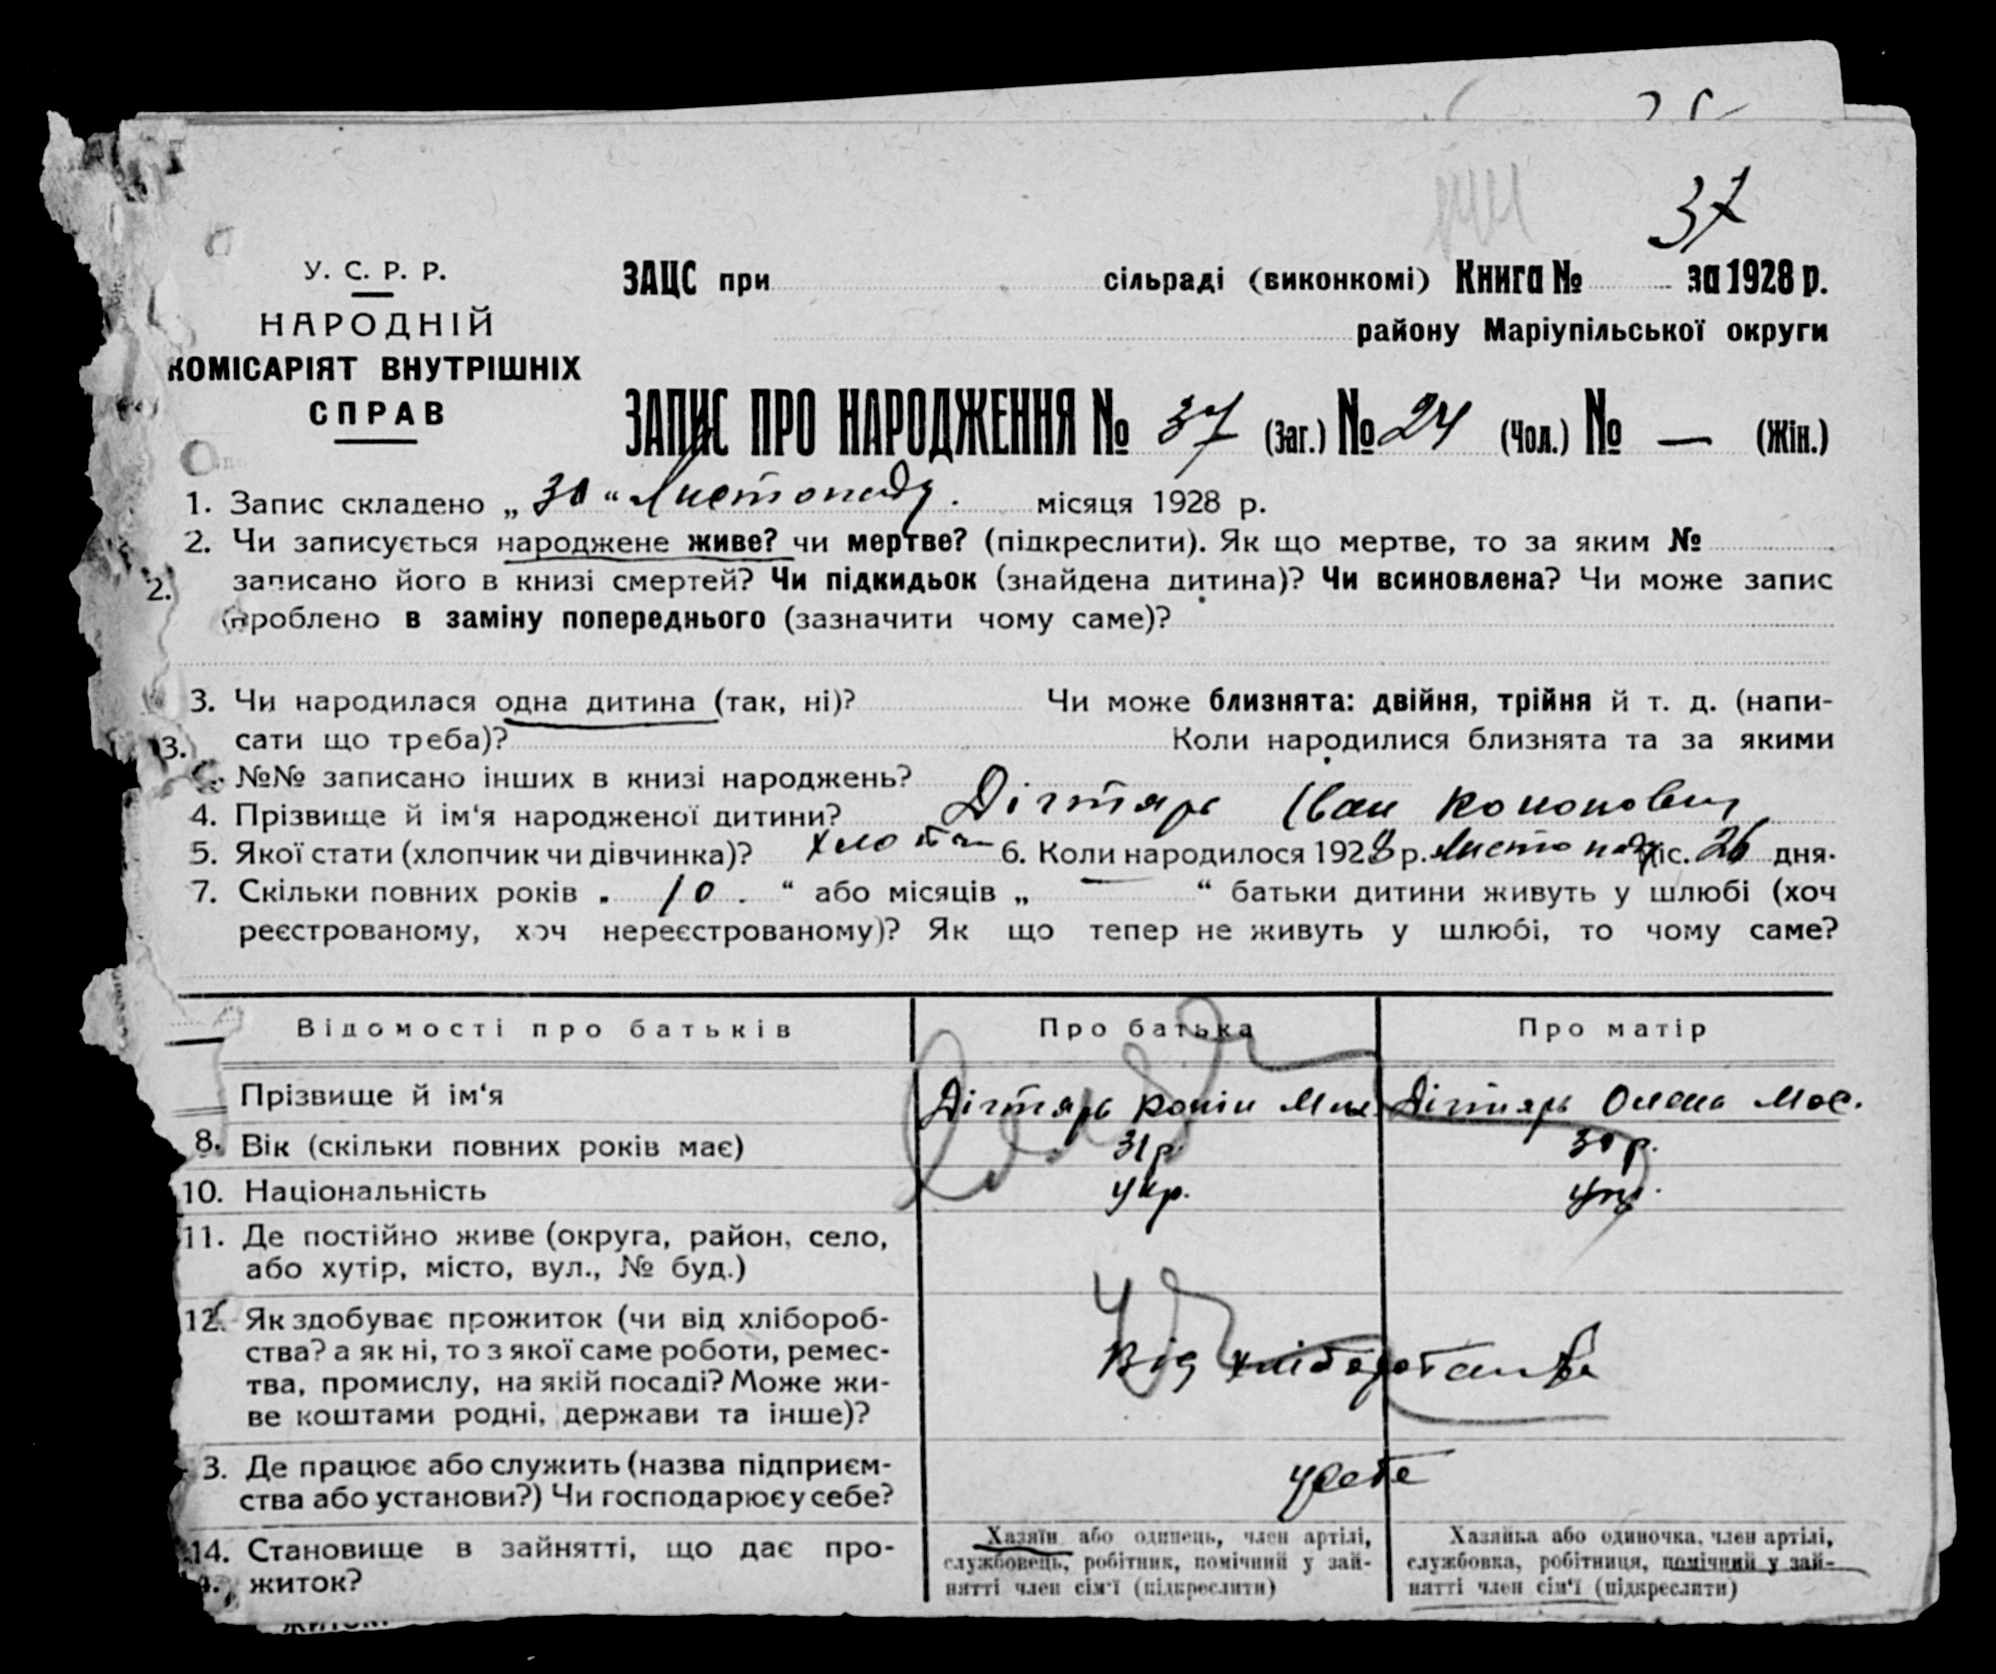 37
У. С. Р. Р.
НАРОДНІЙ
КОМІСАРІЯТ ВНУТРІШНІХ
СПРАВ
ЗАЦС при сільраді (виконкомі) Книга № за 1928 р.
району Маріупільської округи
ЗАПИС ПРО НАРОДЖЕННЯ № 37 (Заг.) № 24 (Чол.) № — (Жін.)
1. Запис складено „ 30 “ Листопаду місяця 1928 р.
2. Чи записується народжене живе? чи мертве? (підкреслити). Як що мертве, то за яким №
2. записано його в книзі смертей? Чи підкидьок (знайдена дитина)? Чи всиновлена? Чи може запис
проблено в заміну попереднього (зазначити чому саме)?
3. Чи народилася одна дитина (так, ні)? Чи може близнята: двійня, трійня й т. д. (напи-
3. сати що треба)? Коли народилися близнята та за якими
№№ записано інших в книзі народжень?
4. Прізвище й ім‘я народженої дитини? Дігтярь Іван Кононович
5. Якої стати (хлопчик чи дівчинка)? 6. Коли народилося 1928 р. Листопаду міс. 26 дня.
7. Скільки повних років „ 10 “ або місяців „ — “ батьки дитини живуть у шлюбі (хоч
реєстрованому, хоч нереєстрованому)? Як що тепер не живуть у шлюбі, то чому саме?
Відомості про батьків Про батька Про матір
Прізвище й ім‘я Дігтярь Конін Мих. Дігтярь Олена Мос.
8. Вік (скільки повних років має) 31 р. 30 р.
10. Національність укр. укр.
11. Де постійно живе (округа, район, село,
або хутір, місто, вул., № буд.)
12. Як здобуває прожиток (чи від хлібороб-
ства? а як ні, то з якої саме роботи, ремес-
Від хліборобства
тва, промислу, на якій посаді? Може жи-
ве коштами родні, держави та інше)?
3. Де працює або служить (назва підприєм-
у себе
ства або установи?) Чи господарює у себе?
14. Становище в зайнятті, що дає про-
житок?
Хазяїн або одинець, член артілі,
службовець, робітник, помічний у зай-
нятті член сім‘ї (підкреслити)
Хазяйка або одиночка, член артілі,
службовка, робітниця, помічний у зай-
нятті член сім‘ї (підкреслити)